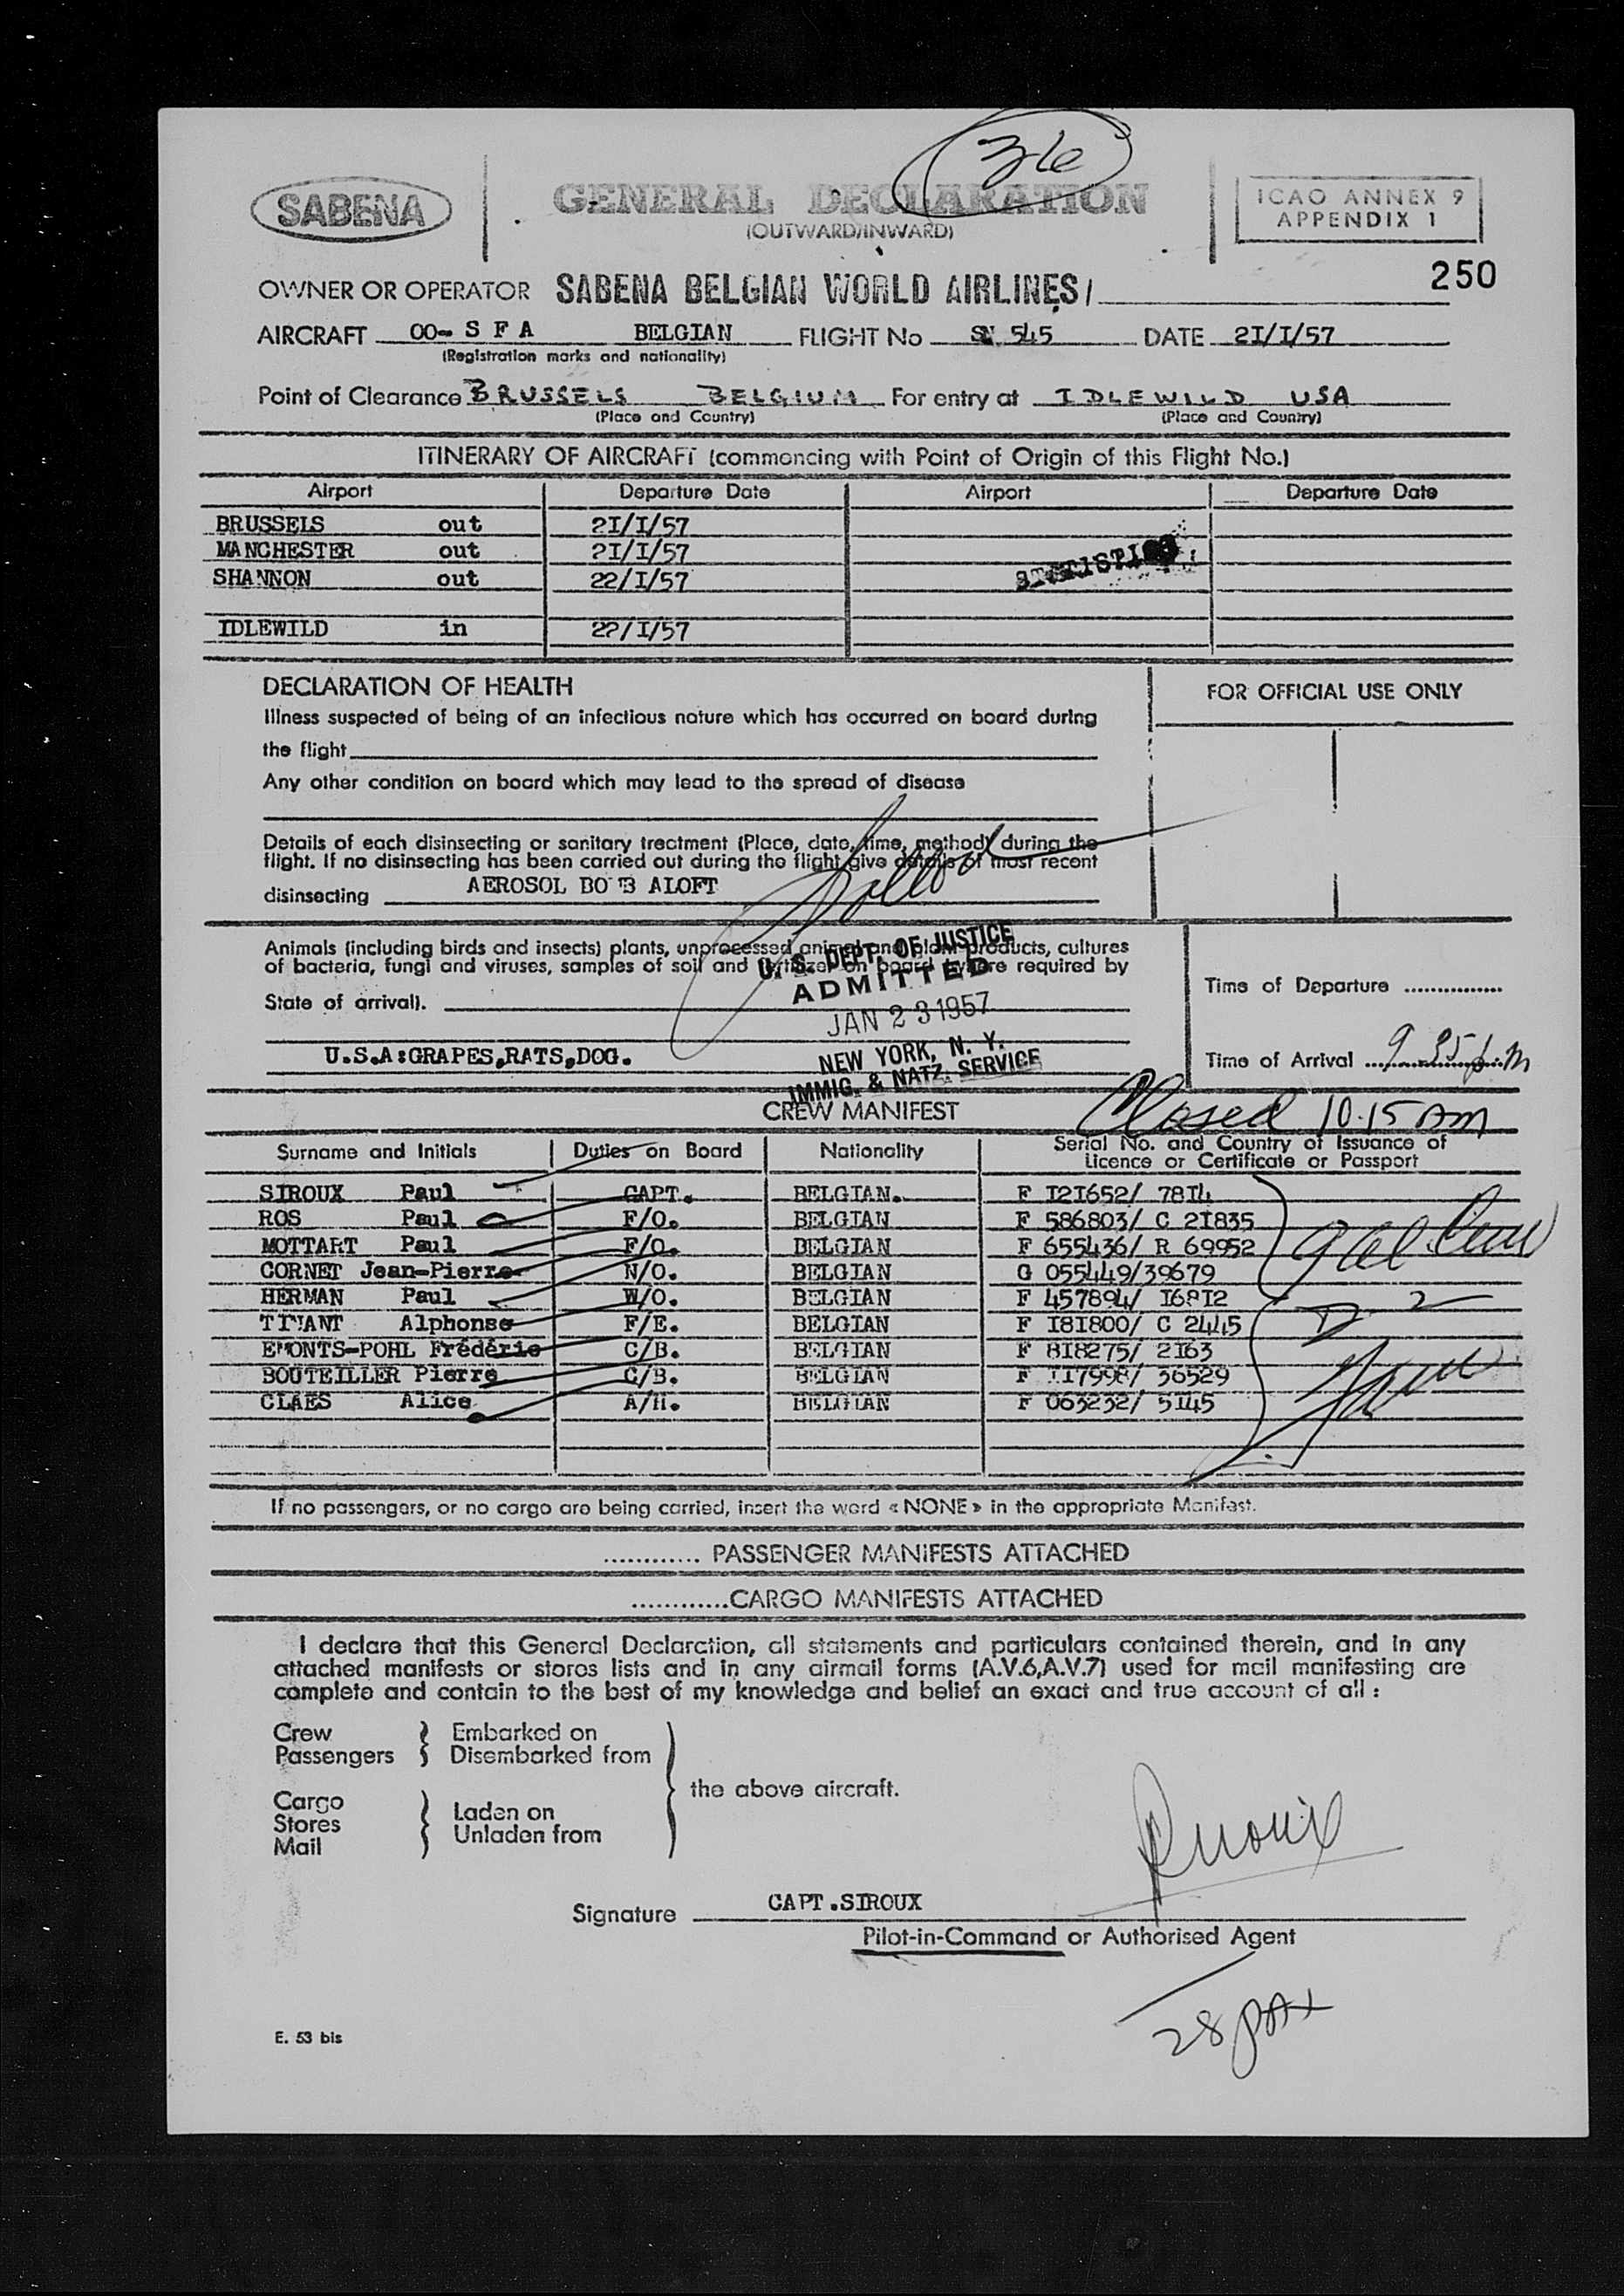 36
SABENA
GENERAL DECLARATION
(OUTWARD/INWARD)
ICAO ANNEX 9
APPENDIX 1
250
OWNER OR OPERATOR SABENA BELGIAN WORLD AIRLINES/
AIRCRAFT OO- S F A BELGIAN FLIGHT No SN 545 DATE 2I/I/57
(Registration marks and nationality)
Point of Clearance BRUSSELS BELGIUM For entry at IDLEWILD USA
(Place and Country) (Place and Country)
ITINERARY OF AIRCRAFT (commencing with Point of Origin of this Flight No.)
Airport Departure Date Airport Departure Date
BRUSSELS out 2I/I/57
MANCHESTER out 2I/I/57
SHANNON out 22/I/57
STATISTICS
IDLEWILD in 22/I/57
DECLARATION OF HEALTH
FOR OFFICIAL USE ONLY
Illness suspected of being of an infectious nature which has occurred on board during
the flight
Any other condition on board which may lead to the spread of disease
Details of each disinsecting or sanitary treatment (Place, date, time, method) during the
flight. If no disinsecting has been carried out during the flight give details of most recent
disinsecting AEROSOL BO B ALOFT
Animals (including birds and insects) plants, unprocessed animal and plant products, cultures
of bacteria, fungi and viruses, samples of soil and fertilizer on board (where required by
State of arrival).
U.S.A:GRAPES,RATS,DOG.
U. S. DEPT. OF JUSTICE
ADMITTED
JAN 23 1957
NEW YORK, N. Y.
IMMIG. & NATZ. SERVICE
Time of Departure ...............
Time of Arrival 9 35 p.m
Closed 10.15 AM
CREW MANIFEST
Surname and Initials Duties on Board Nationality Serial No. and Country of Issuance of
Licence or Certificate or Passport
SIROUX Paul CAPT. BELGIAN. F I2I652/ 78I4
ROS Paul F/O. BELGIAN F 586803/ C 2I835
MOTTART Paul F/O. BELGIAN F 655436/ R 69952
CORNET Jean-Pierre N/O. BELGIAN G 055449/39679
HERMAN Paul W/O. BELGIAN F 457894/ I68I2
Alphonse F/E. BELGIAN F I8I800/ C 2445
EMONTS-POHL Frédéric C/B. BELGIAN F 8I8275/ 2I63
BOUTEILLER Pierre C/B. BELGIAN F 36529
CLAES Alice A/H. BELGIAN F 063232/ 5I45
If no passengers, or no cargo are being carried, insert the word « NONE » in the appropriate Manifest.
............ PASSENGER MANIFESTS ATTACHED
............CARGO MANIFESTS ATTACHED
I declare that this General Declaration, all statements and particulars contained therein, and in any
attached manifests or stores lists and in any airmail forms (A.V.6,A.V.7) used for mail manifesting are
complete and contain to the best of my knowledge and belief an exact and true account of all :
Crew Embarked on
Passengers Disembarked from
the above aircraft.
Cargo
Stores Laden on
Mail Unladen from
Signature CAPT.SIROUX
Pilot-in-Command or Authorised Agent
28 PAX
E. 53 bis